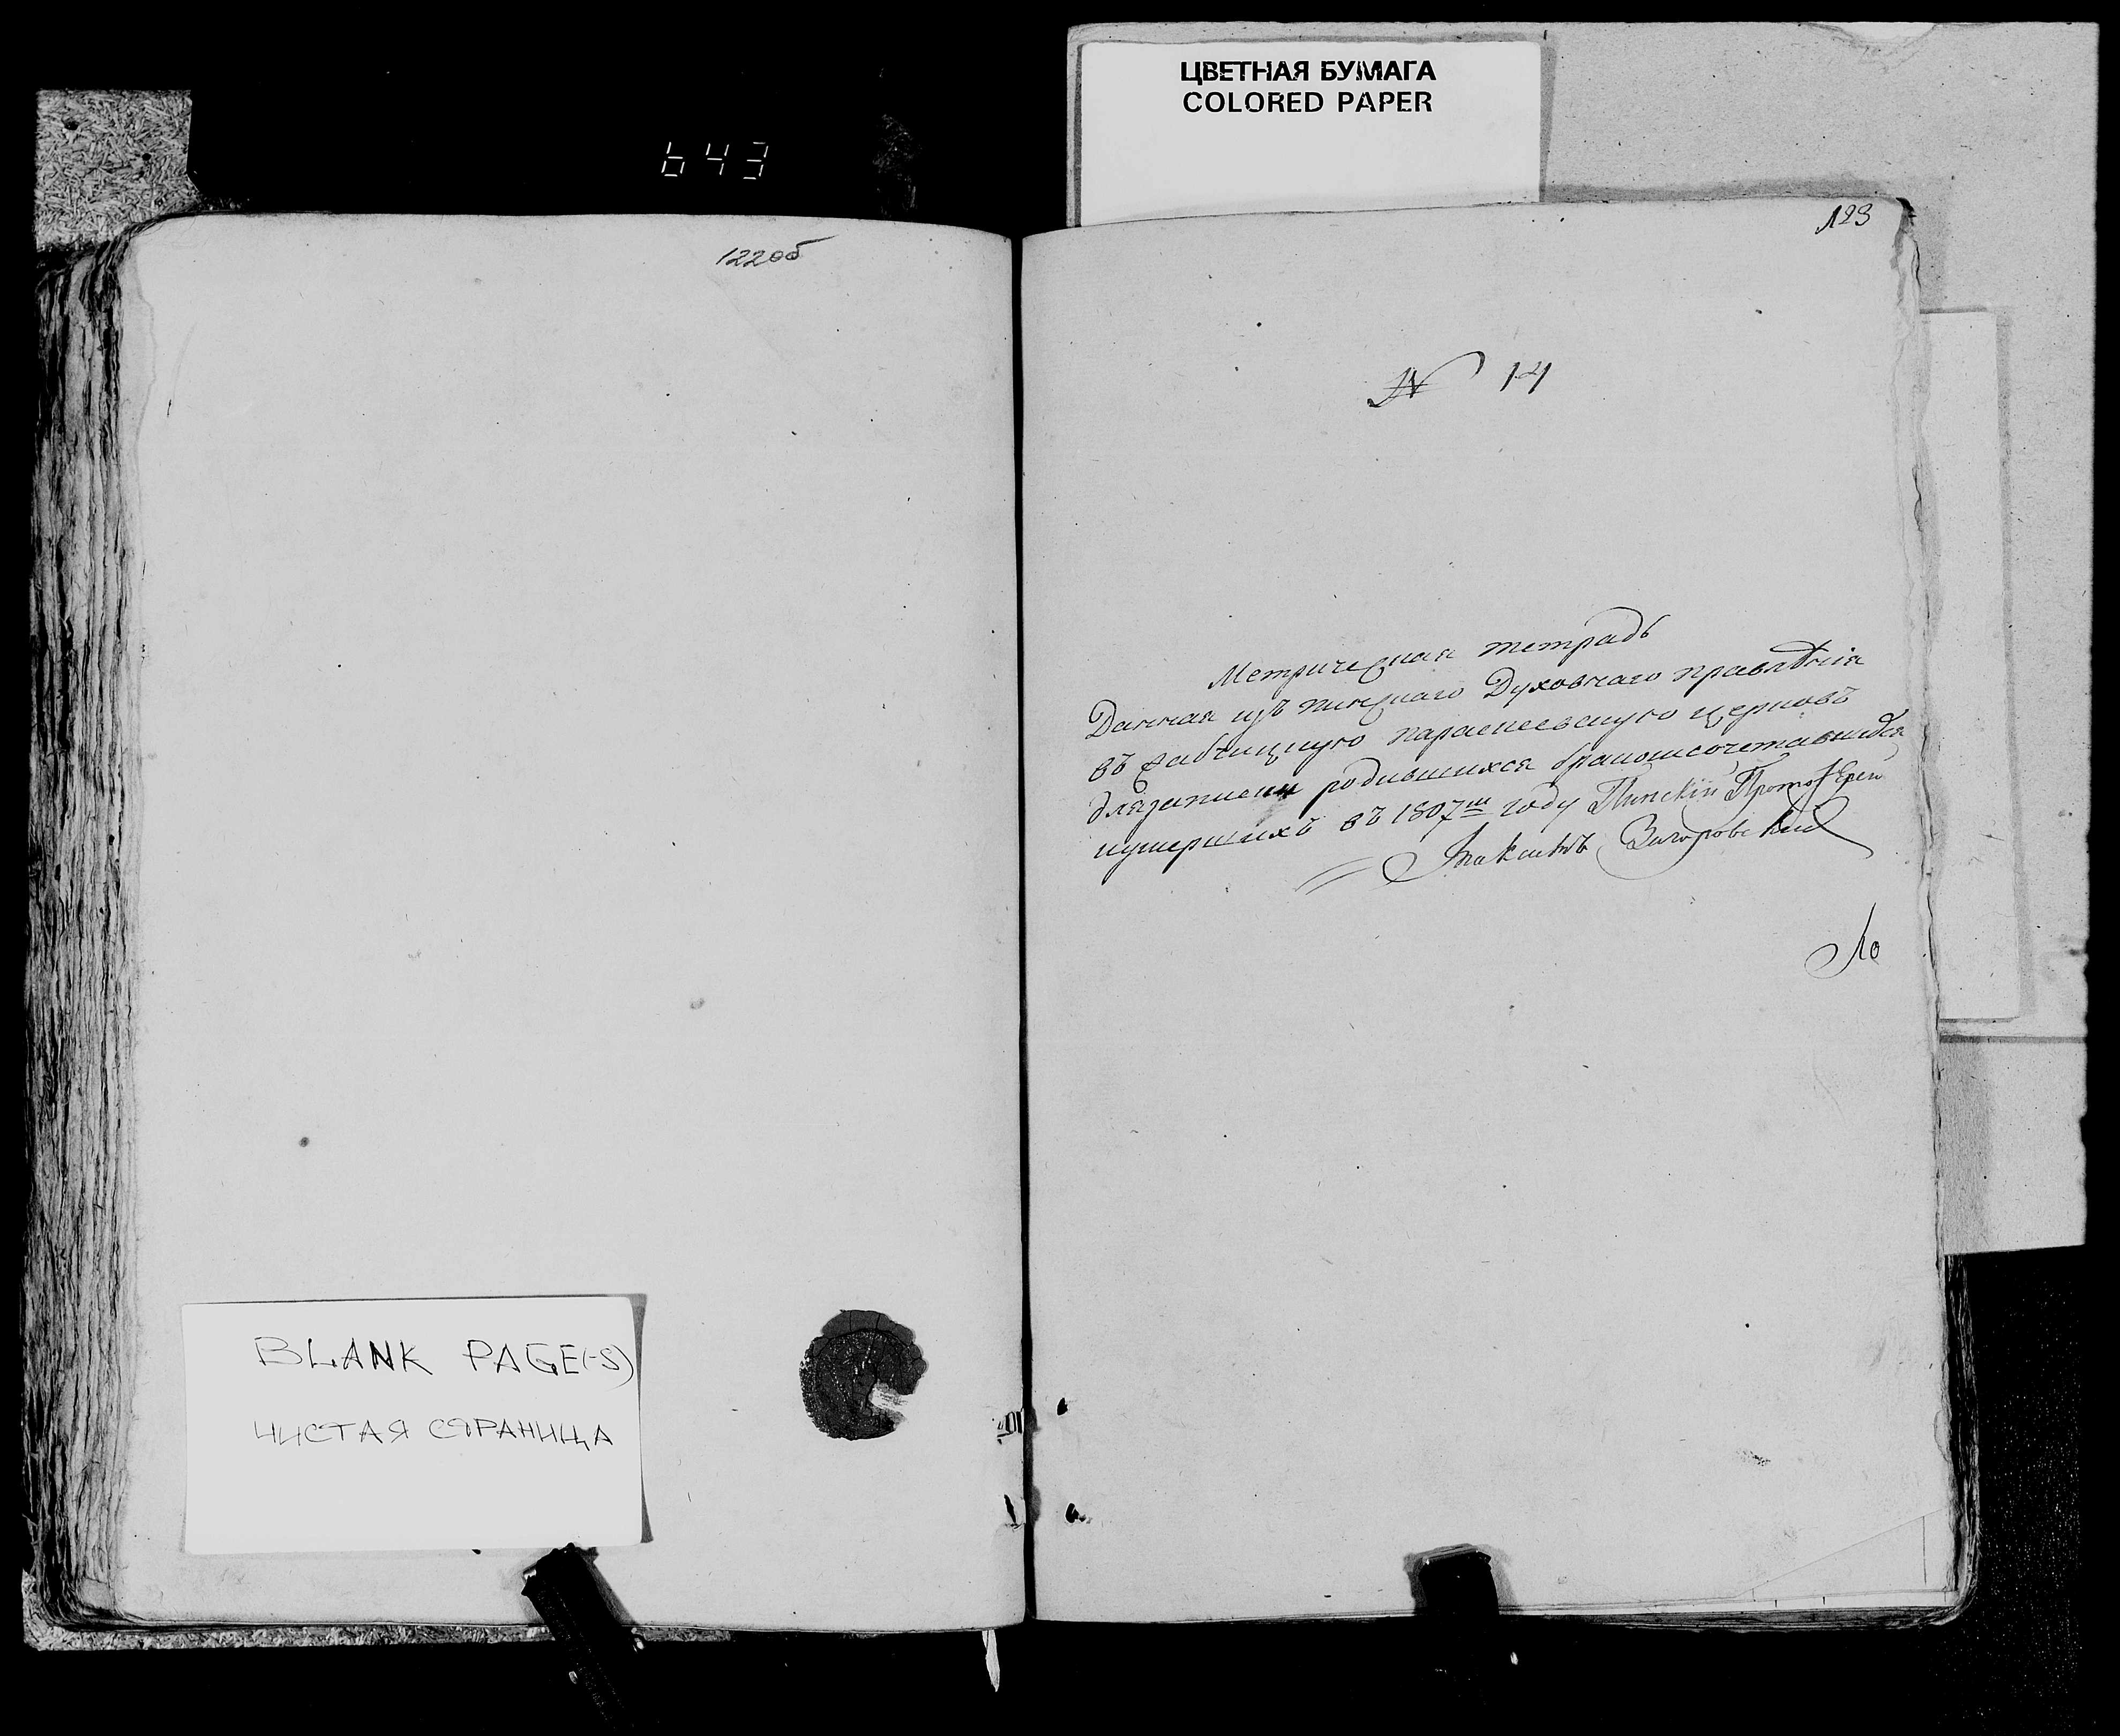 643
ЦВЕТНАЯ БУМАГА
COLORED PAPER
122об
123
N 14
Метрическая тетрадь
Данная изъ пинскаго Духовнаго правлѣнія
въ параскеевскую церковъ
для записки родившихся бракомсочетавшихся
иумершихъ въ 1807м году Пинскій Протоіерей
По
BLANK PAGE(-S)
ЧИСТАЯ СТРАНИЦА